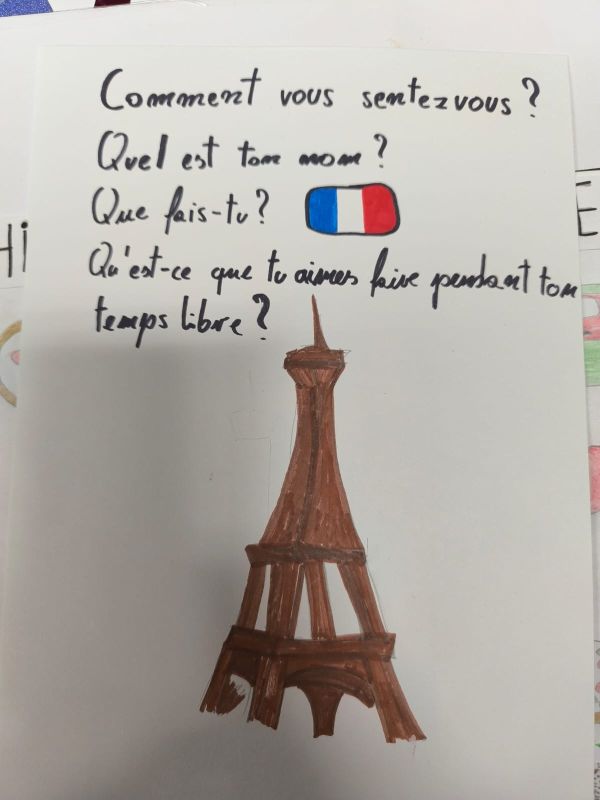 Comment vous sentez vous ?
Quel est ton nom ?
Que fais-tu ?
Hi
E
Qu'est-ce que tu aimes faire pendant ton
temps libre ?